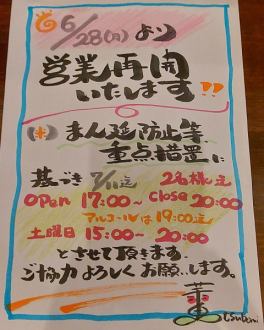 6/28(月)より
営業再開
いたします!!
(木) まん延防止等
重点措置に
基づき 7/11迄 2名様迄
OPen 17:00~ Close 20:00
アルコールは19:00迄
土曜日 15:00~20:00
とさせて頂きます.
ご協力よろしくお願いします。